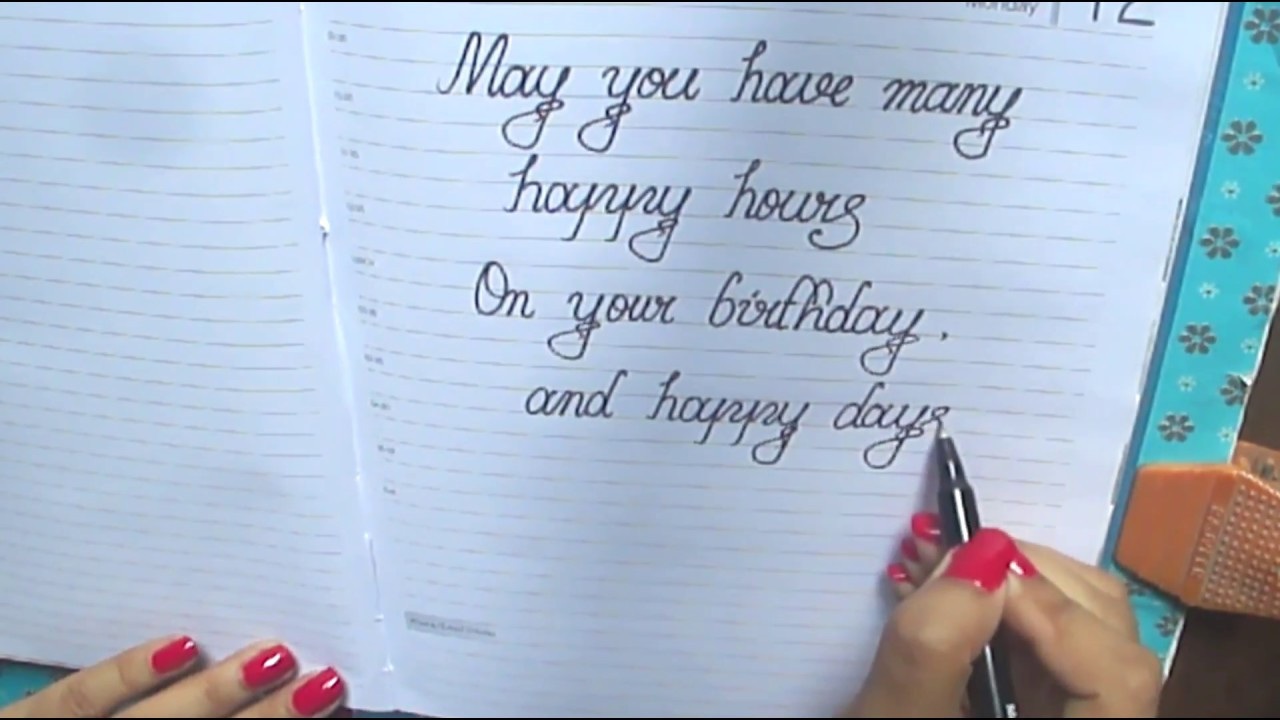 Monday 12
May you have many
happy hours
On your birthday.
and happy days